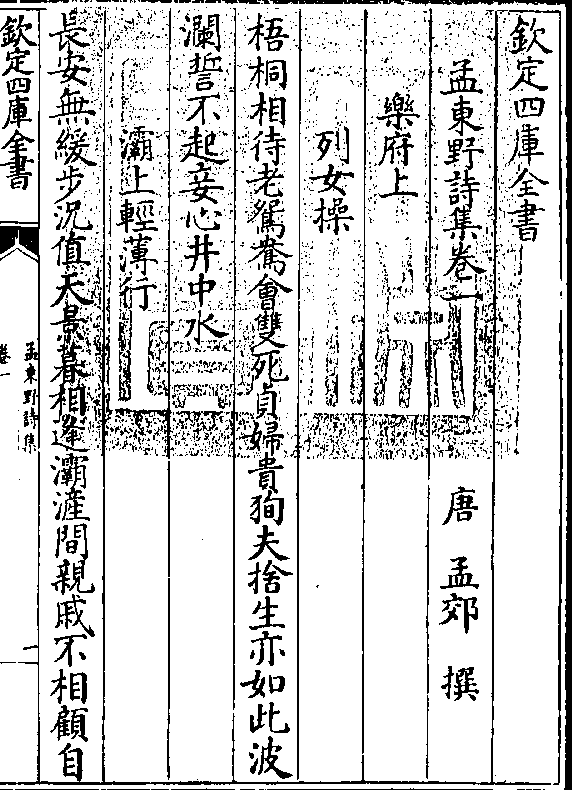 欽定四庫全書
孟東野詩集卷一
唐 孟郊 撰
樂府上
列女操
梧桐相待老鴛鴦會雙死貞婦貴狥夫捨生亦如此波
瀾誓不起妾心井中水
灞上輕薄行
長安無緩步況值天景暮相逢灞滻間親戚不相顧自
欽定四庫全書
孟東野詩集
卷一
一